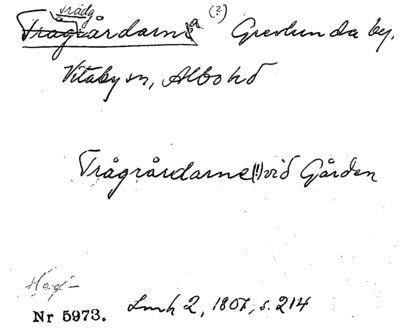 vrädg
Trägårdarna (?) Grevlunda by,
Vitaby sn, Albo hd
Trågrårdarne(!) vid Gården
Hag!-
Nr 5973. Lmh 2, 1807, s. 214